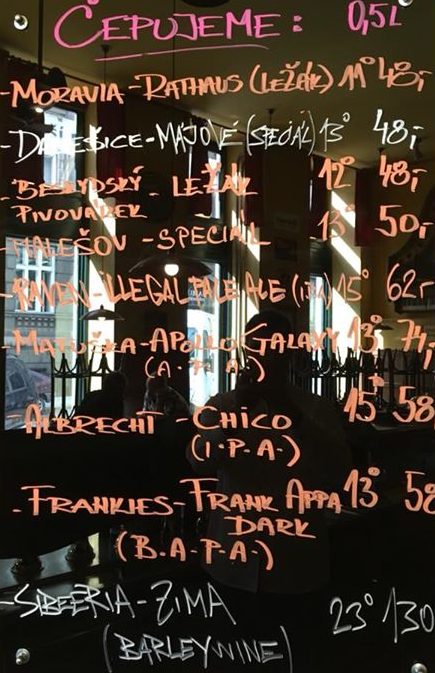 ČEPUJEME: 0,5L
-MORAVIA-RATHAUS (LEŽÁK) 11° 48,-
-DALEŠICE-MÁJOVÉ (SPECIÁL) 13° 48,-
-BESKYDSKÝ - LEŽÁK 12° 48,-
PIVOVÁREK
-MALEŠOV - SPECIÁL 13° 50,-
-RAVEN-ILLEGAL PALE ALE (IPA) 15° 62,-
-MATUŠKA-APOLLO GALAXY 13° 74,-
(A·P·A·)
-ALBRECHT - CHICO 15° 58
(I·P·A·)
-FRANKIES-FRANK APPA 13° 58
DARK
(B·A·P·A·)
-SIBEERIA-ZIMA 23° 130
(BARLEYWINE)